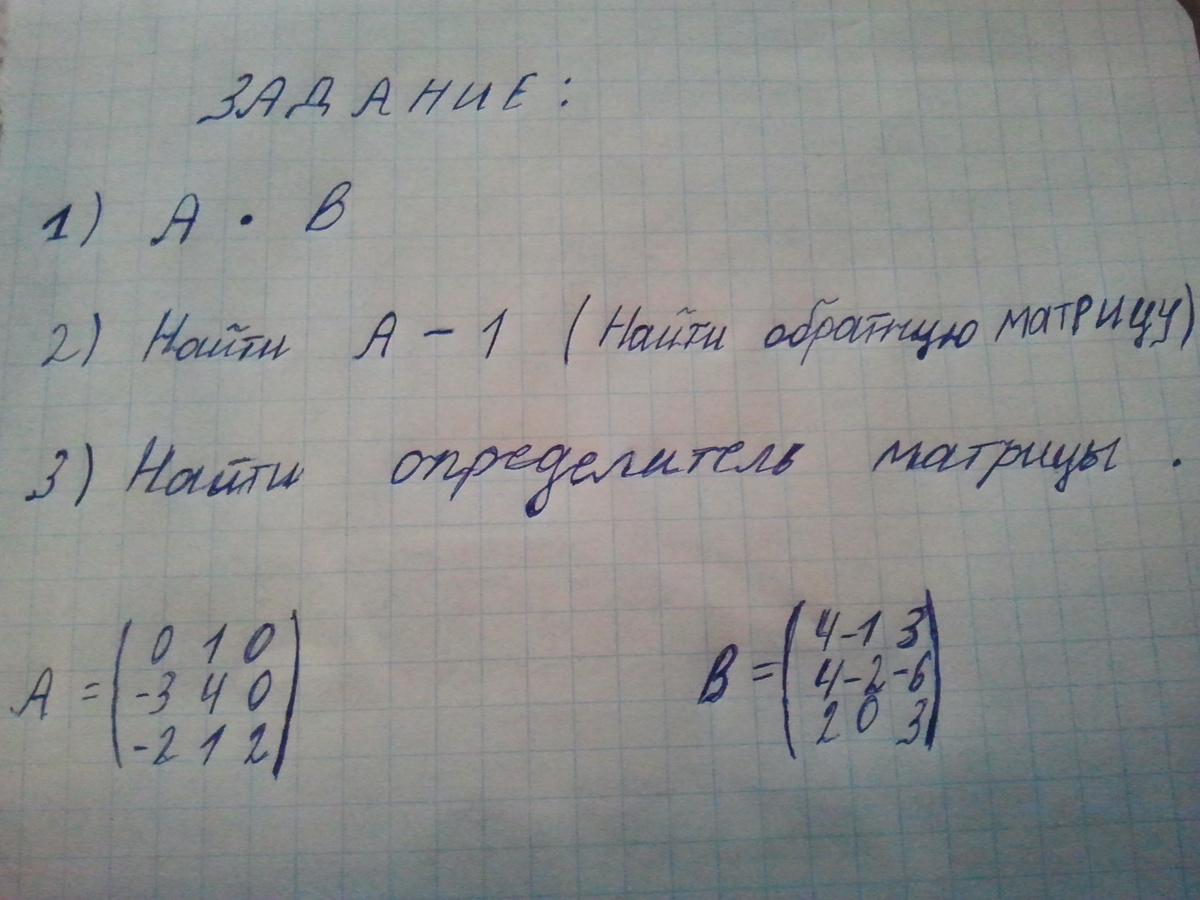 ЗАДАНИЕ:
1) А · В
2) Найти А - 1 (Найти обратную матрицу)
3) Найти определитель матрицы.
А = ( 0 1 0
-3 4 0
-2 1 2 )
В = ( 4 -1 3
4 -2 -6
2 0 3 )